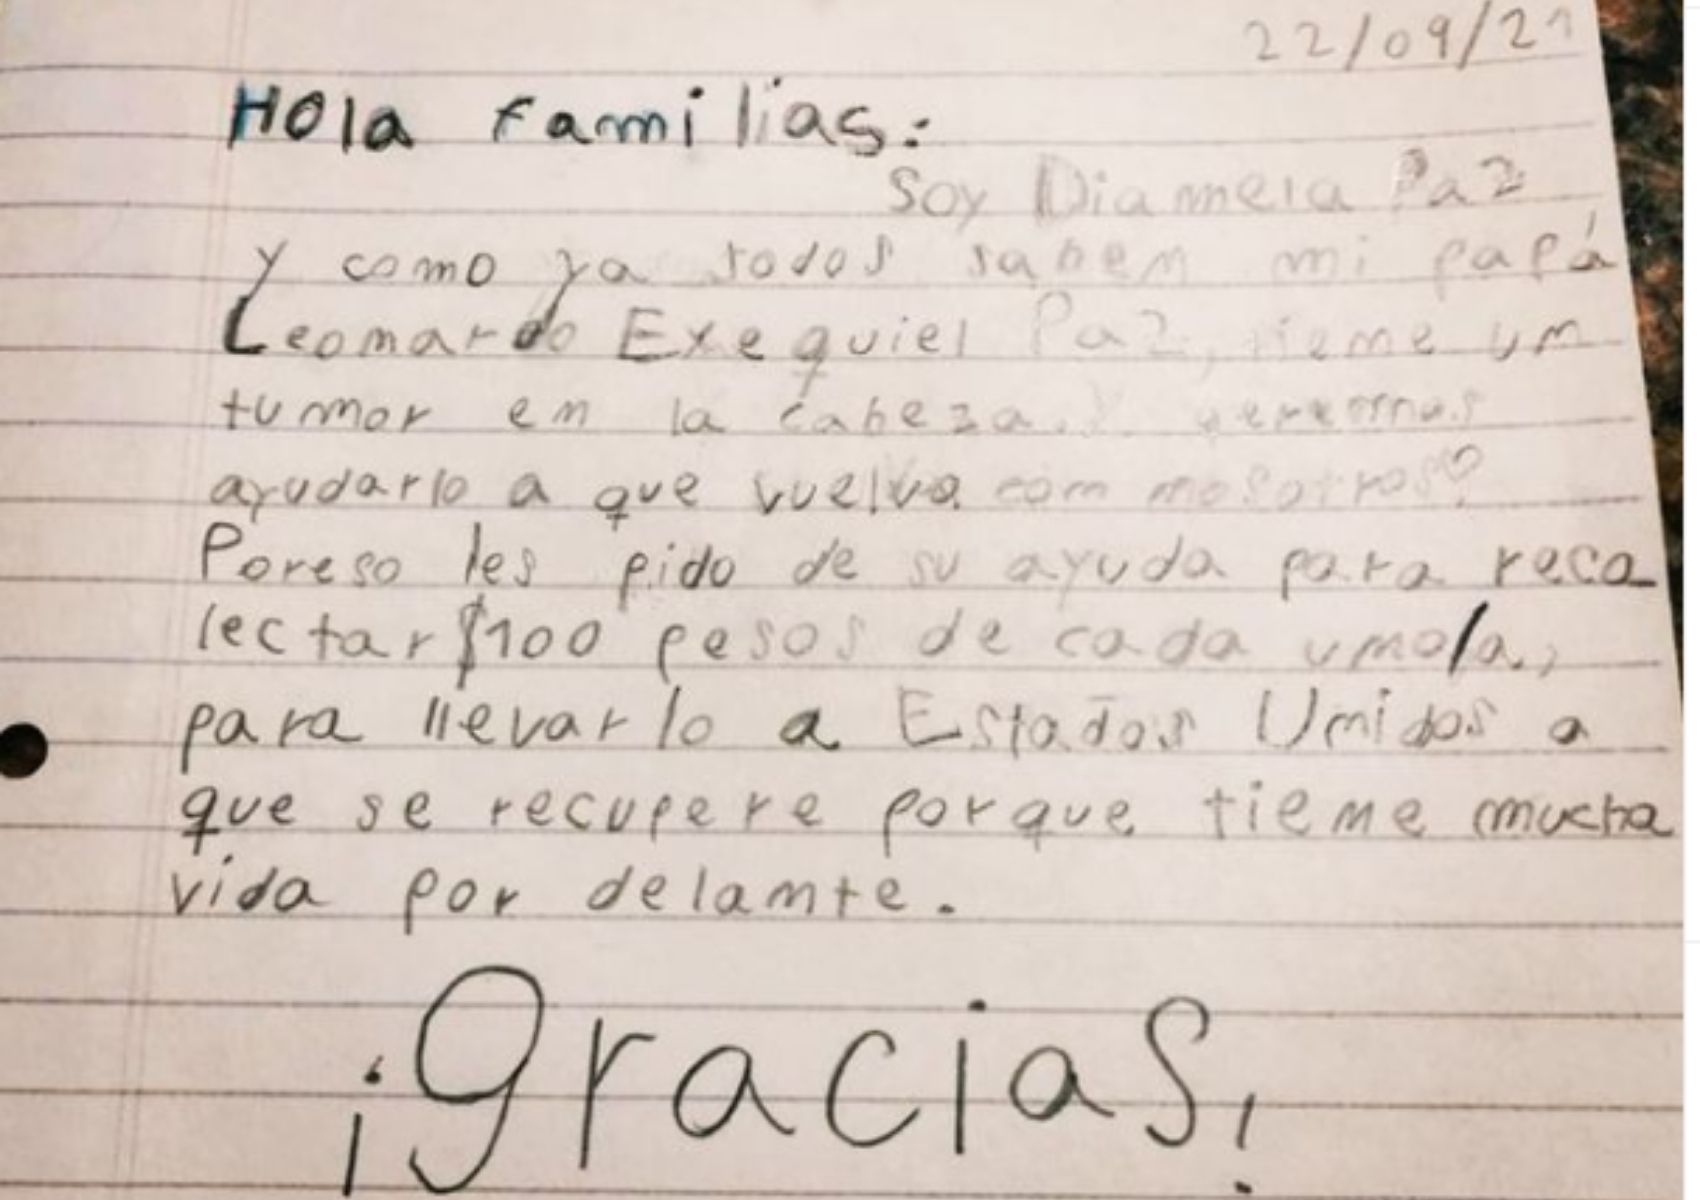 22/09/21
Hola familias:
Soy Diamela Paz
y como ya todos saben mi papá
Leonardo Exequiel Paz, tiene un
tumor en la cabeza. Y queremos
ayudarlo a que vuelva con nosotros♡
Poreso les pido de su ayuda para reco
lectar $100 pesos de cada uno/a,
para llevarlo a Estados Unidos a
que se recupere porque tiene mucha
vida por delante.
¡Gracias!